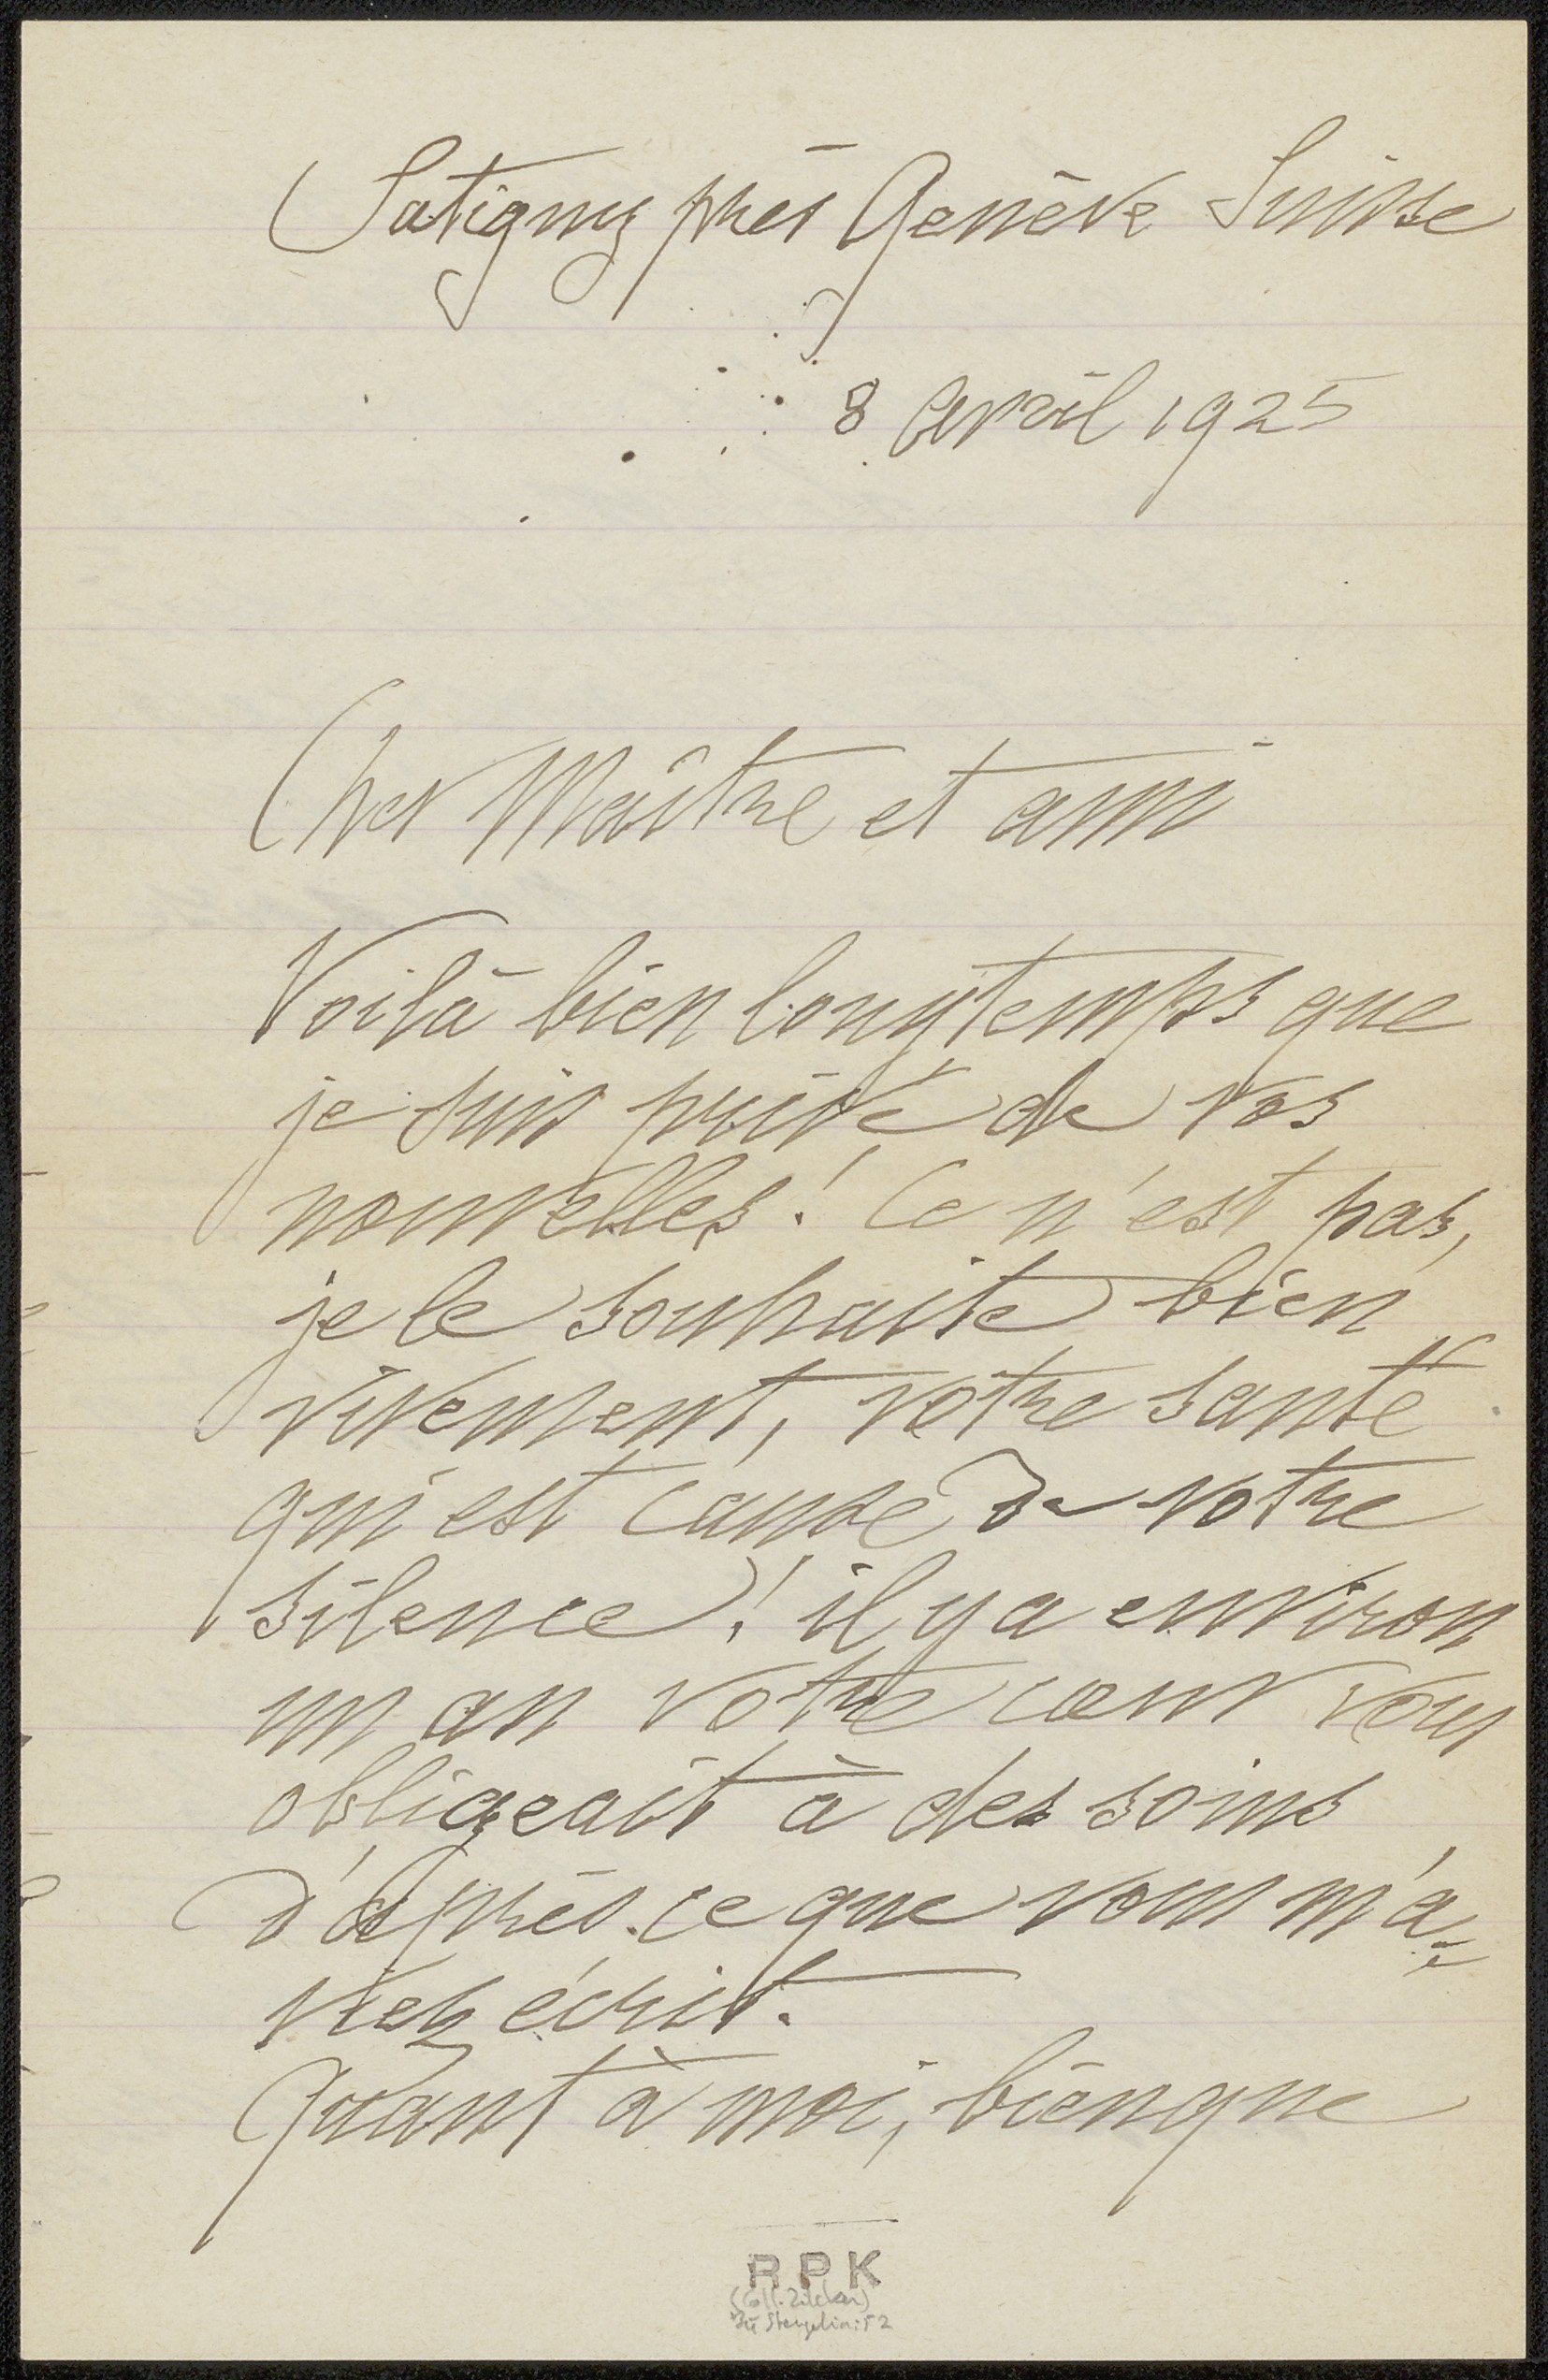 Satigny près Genève Suisse
8 Avril 1925
Cher Maître et ami
Voilà bien longtemps que
je suis privé de vos
nouvelles! Ce n'est pas,
je le souhaite bien
vivement, votre santé
qui est cause de votre
silence! il y a environ
un an votre cœur vous
obligeait à des soins
d'après ce que vous m'a-
viez écrit.
Quant à moi, bien que
RPK
(Coll. Zilcken)
Stengelin: 52